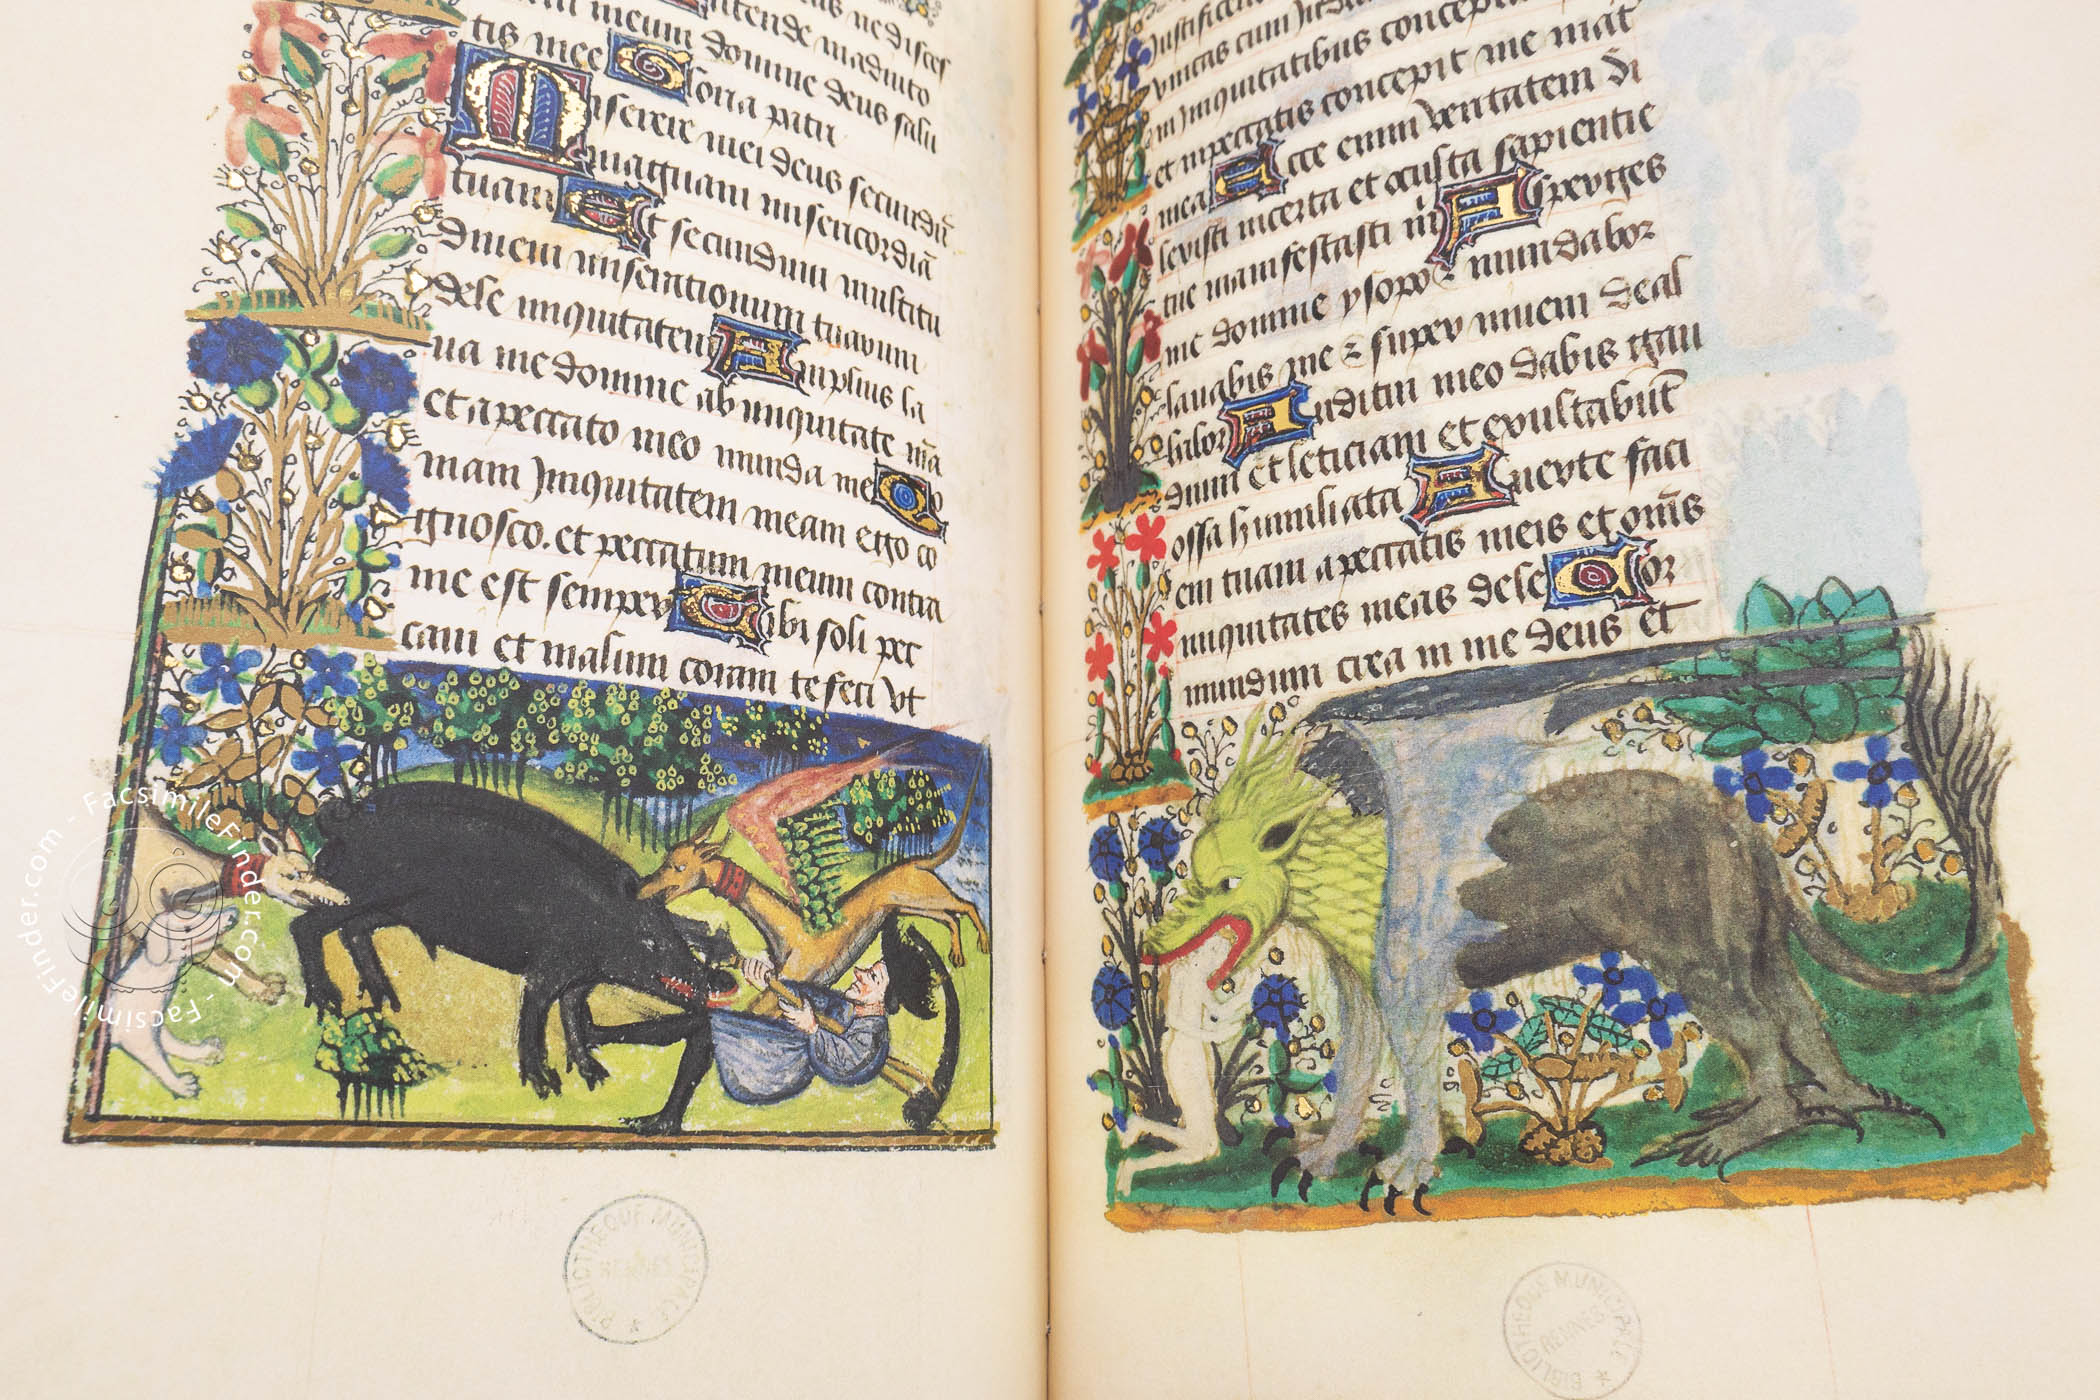 tende in adiuto
rium meum domine deus salu
tis mee Gloria patri
Miserere mei deus secundũ
magnam misericordiã
tuam Et secundum multitu
dinem miserationum tuarum
dele iniquitatem Amplius la
ua me domine ab iniquitate mã
et a peccato meo munda me Qo
niam Iniquitatem meam ego co
gnosco. et peccatum meum contra
me est semper Tibi soli pec
caui et malum coram te feci Vt
Justificeris
Vincas cum Iudi
in Iniquitatibus conceptus
et in peccatis concepit me mat
mea Ecce enim veritatem di
lexisti incerta et oculta sapientie
tue manifestasti m Asperges
me domine ysopo z mundabor
lauabis me z super niuem deal
babor Auditui meo dabis gau
dium et leticiam et exultabũt
ossa humiliata Auerte faci
em tuam a peccatis meis et omẽs
iniquitates meas dele Cor
mundum crea in me deus et
FacsimileFinder.com - FacsimileFinder.com -
BIBLIOTHEQUE MUNICIPALE
RENNES
BIBLIOTHEQUE MUNICIPALE
RENNES